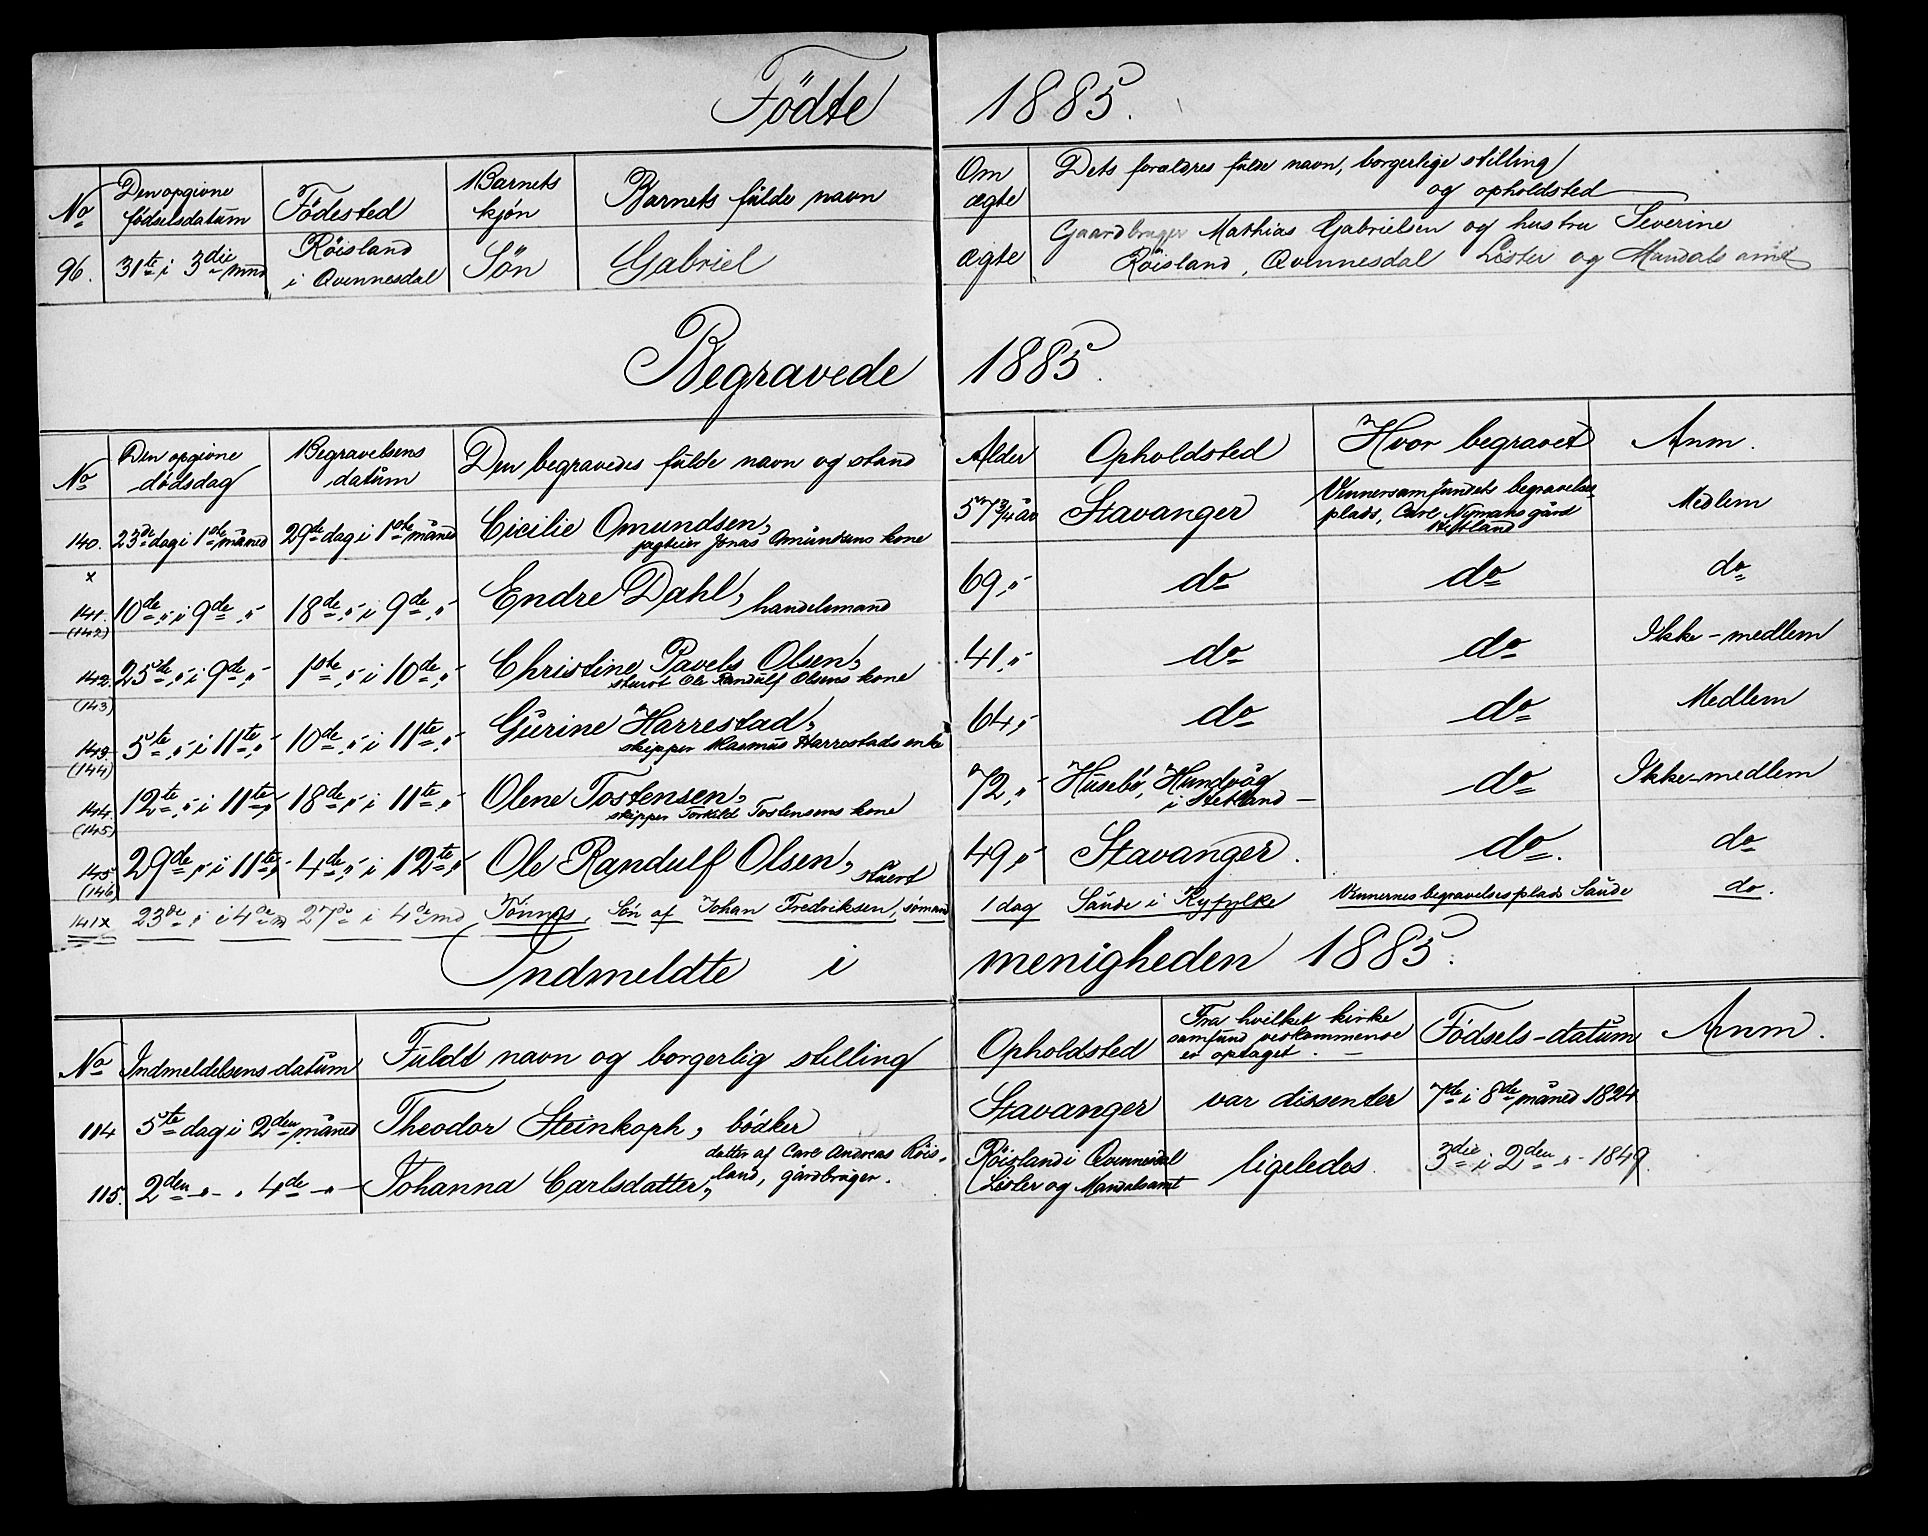 Födte 1885.
No | Den opgivne födselsdatum | Födested | Barnets kjön | Barnets fulde navn | Om ægte | Dets forældres fulde navn, borgerlige stilling og opholdsted
96. | 31te i 3die mnd | Röisland i Qvinnesdal | Sön | Gabriel | ægte | Gaardbruger Mathias Gabrielsen og hustru Severine Röisland, Qvinnesdal Lister og Mandals amt
Begravede 1885.
No | Den opgivne dödsdag | Begravelsens datum | Den begravedes fulde navn og stand | Alder | Opholdsted | Hvor begravet | Anm.
140. | 23de dag i 1ste måned | 29de dag i 1ste måned | Cicilie Omundsen, jagteier Jonas Omundsens kone | 57 3/4 år | Stavanger | Vennersamfundets begravelsesplads, Carl Nymans gård Hetland | Medlem
x
141. (142) | 10de " i 9de " | 18de " i 9de " | Endre Dahl, handelsmand | 69 " | do | do | do
142. (143) | 25te " i 9de " | 1ste " i 10de " | Christine Pavels Olsen, stuert Ole Randulf Olsens kone | 41 " | do | do | Ikke-medlem
143. (144) | 5te " i 11te " | 10de " i 11te " | Gurine Harrestad, skipper Rasmus Harrestads enke | 64 " | do | do | Medlem
144. (145) | 12te " i 11te " | 18de " i 11te " | Olene Tostensen, skipper Torkild Tostensens kone | 72 " | Husebö, Hundvåg i Hetland | do | Ikke-medlem
145. (146) | 29de " i 11te " | 4de " i 12te " | Ole Randulf Olsen, stuert | 49 " | Stavanger. | do. | do
141x | 23de " i 4de m | 27de i 4de md | Tönnes, Sön af Johan Fredriksen, sömand | 1 dag | Saude i Ryfylke | Vennernes begravelsesplads Saude | do.
Indmeldte i menigheden 1885.
No | Indmeldelsens-datum | Fuldt navn og borgerlig stilling | Opholdsted | Fra hvilket kirkesamfund vedkommende er optaget. | Födsels-datum | Anm.
114 | 5te dag i 2den måned | Theodor Steinkoph, bödker | Stavanger | var dissenter | 7de i 8de måned 1824
115. | 2den " " 4de " | Johanna Carlsdatter, datter af Carl Andreas Röisland, gårdbruger. | Röisland i Qvinnesdal Lister og Mandalsamt | ligeledes. | 3die i 2den " 1849.